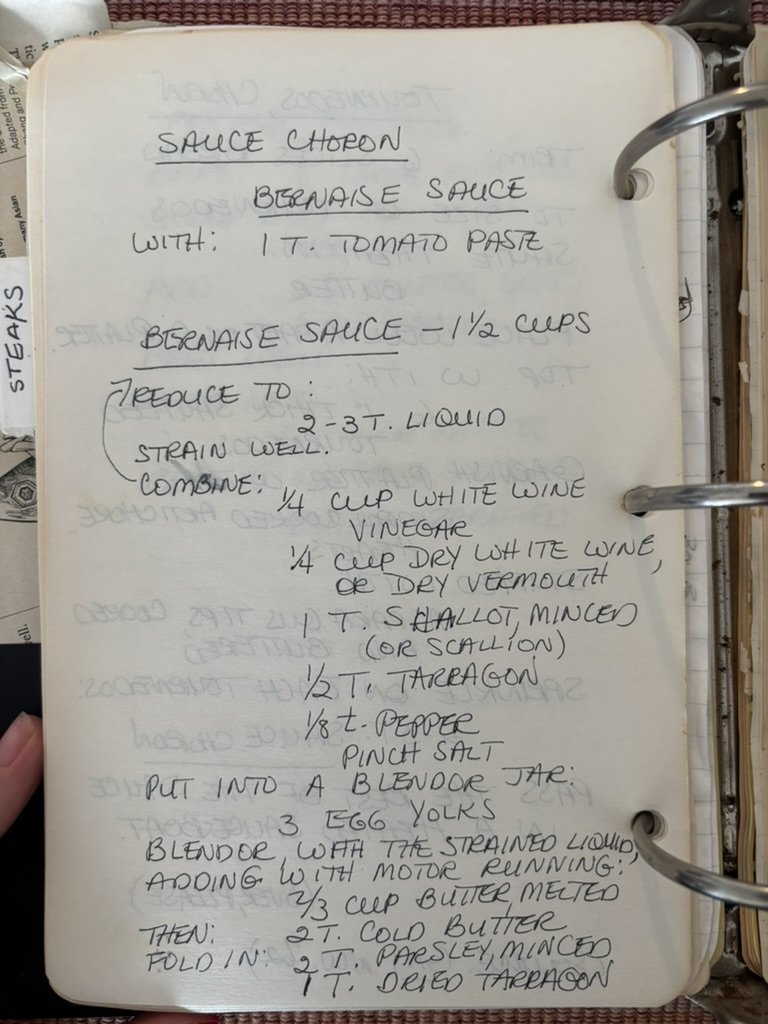 SAUCE CHORON
BERNAISE SAUCE
WITH: 1 T. TOMATO PASTE
BERNAISE SAUCE – 1 1/2 CUPS
REDUCE TO:
2-3 T. LIQUID
STRAIN WELL.
COMBINE:
1/4 CUP WHITE WINE
VINEGAR
1/4 CUP DRY WHITE WINE,
OR DRY VERMOUTH
1 T. SHALLOT, MINCED
(OR SCALLION)
1/2 T. TARRAGON
1/8 t. PEPPER
PINCH SALT
PUT INTO A BLENDOR JAR:
3 EGG YOLKS
BLENDOR, WITH THE STRAINED LIQUID,
ADDING WITH MOTOR RUNNING:
2/3 CUP BUTTER, MELTED
THEN: 2 T. COLD BUTTER
FOLD IN: 2 T. PARSLEY, MINCED
1 T. DRIED TARRAGON
STEAKS
Adapted from
many Asian
ell.